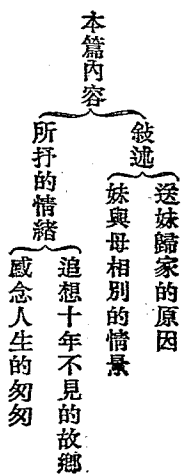 本篇內容
敍述
送妹歸家的原因
妹與母相別的情景
所抒的情緒
追想十年不見的故鄉
感念人生的匆匆